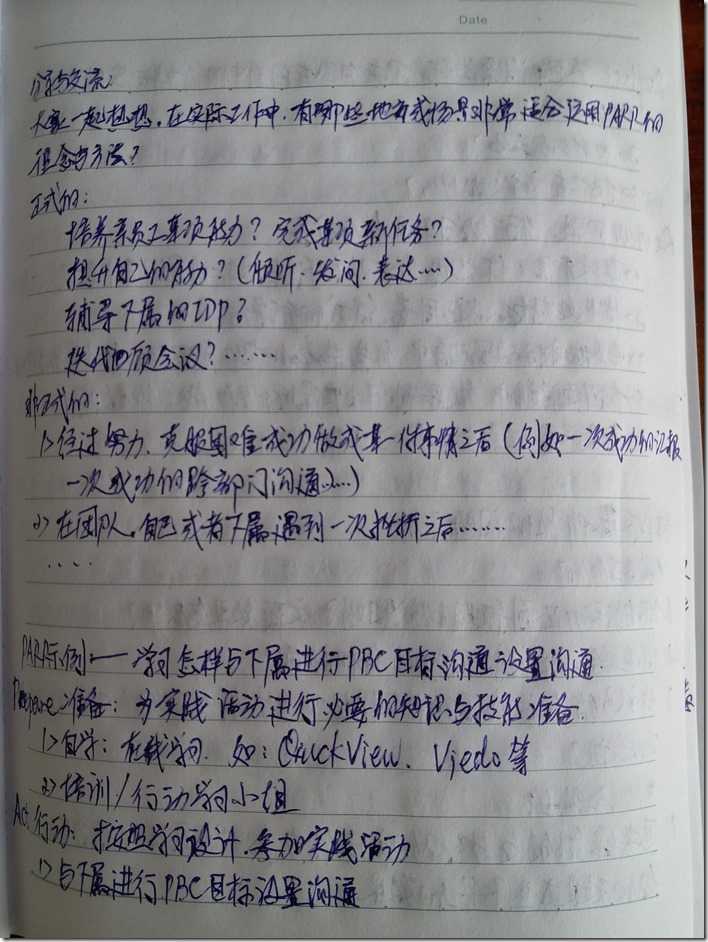 Date
分享与交流:
大家一起想想,在实际工作中,有哪些地方或场景非常适合运用PARR的
理念与方法?
正式的:
培养亲员工某项能力?完成某项新任务?
提升自己的能力?(倾听、发问、表达....)
辅导下属的IDP?
迭代回顾会议?......
非正式的:
1>经过努力、克服困难成功做成某一件事情之后(例如一次成功的汇报
一次成功的跨部门沟通......)
2>在团队、自己或者下属遇到一次挫折之后......
....
PARR示例——学习怎样与下属进行PBC目标沟通设置沟通.
Prepare准备:为实践活动进行必要的知识与技能准备.
1>自学:在线学习.如:QuickView、Vjedo等
2>培训/行动学习小组
Act行动:按照学习设计、参加实践活动
1>与下属进行PBC目标设置沟通